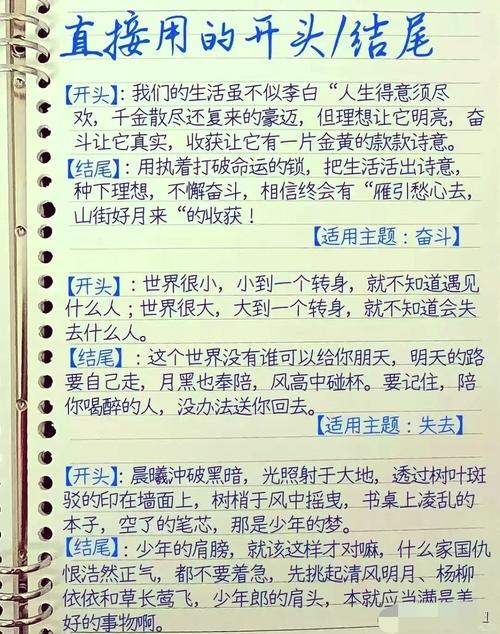 直接用的开头/结尾
【开头】：我们的生活虽不似李白“人生得意须尽
欢，千金散尽还复来的豪迈，但理想让它明亮，奋
斗让它真实，收获让它有一片金黄的款款诗意。
【结尾】：用执着打破命运的锁，把生活活出诗意，
种下理想，不懈奋斗，相信终会有“雁引愁心去，
山街好月来“的收获！
【适用主题：奋斗】
【开头】：世界很小，小到一个转身，就不知道遇见
什么人；世界很大，大到一个转身，就不知道会失
去什么人。
【结尾】：这个世界没有谁可以给你朋天，明天的路
要自己走，月黑也奉陪，风高中碰杯。要记住，陪
你喝醉的人，没办法送你回去。
【适用主题：失去】
【开头】：晨曦沖破黑暗，光照射于大地，透过树叶斑
驳的印在墙面上，树梢于风中摇曳，书桌上凌乱的
本子，空了的笔芯，那是少年的梦。
【结尾】：少年的肩膀，就该这样才对嘛，什么家国仇
恨浩然正气，都不要着急，先挑起清风明月、杨柳
依依和草长莺飞，少年郎的肩头，本就应当满是美
好的事物啊。